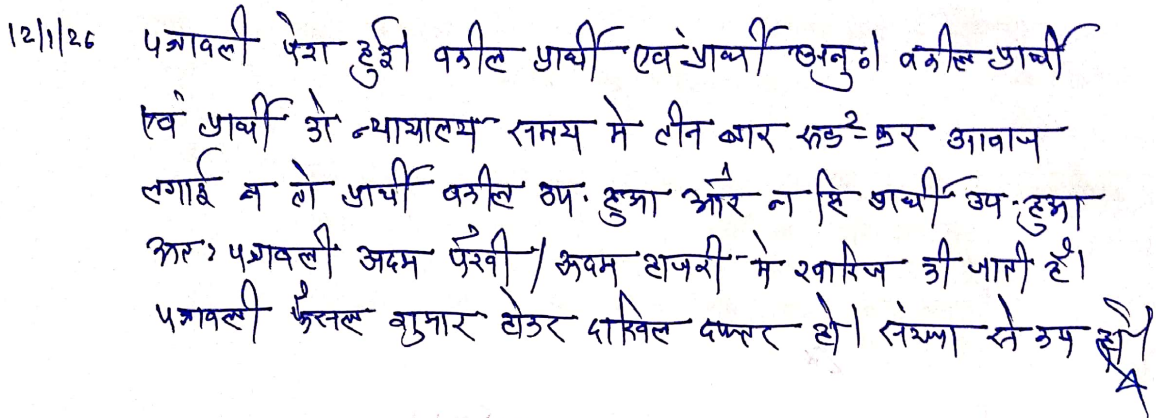 12/1/26 पत्रावली पेश हुई। वकील प्रार्थी एवं प्रार्थी अनु०। वकील प्रार्थी
एवं प्रार्थी को न्यायालय समय मे तीन बार रूक २ कर आवाज
लगाई न तो प्रार्थी वकील उप. हुआ और न हि प्रार्थी उप. हुआ
अतः पत्रावली अदम पैरवी / अदम हाजरी मे खारिज की जाती है।
पत्रावली फैसल शुमार होकर दाखिल दफ्तर हो। संख्या से कम हो।